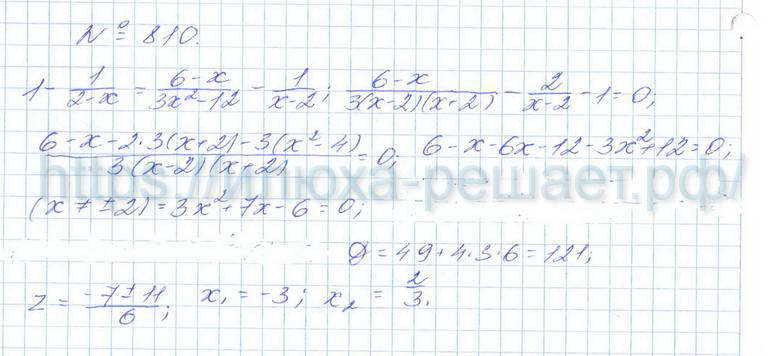 № 810.
1 - 1/(2-x) = (6-x)/(3x²-12) - 1/(x-2); (6-x)/(3(x-2)(x+2)) - 2/(x-2) - 1 = 0;
(6-x-2·3(x+2)-3(x²-4))/(3(x-2)(x+2)) = 0; 6-x-6x-12-3x²+12=0;
https://илюха-решает.рф/
(x ≠ ±2) = 3x²+7x-6=0;
D = 49+4·3·6=121;
z = (-7±11)/6; x₁ = -3; x₂ = 2/3.